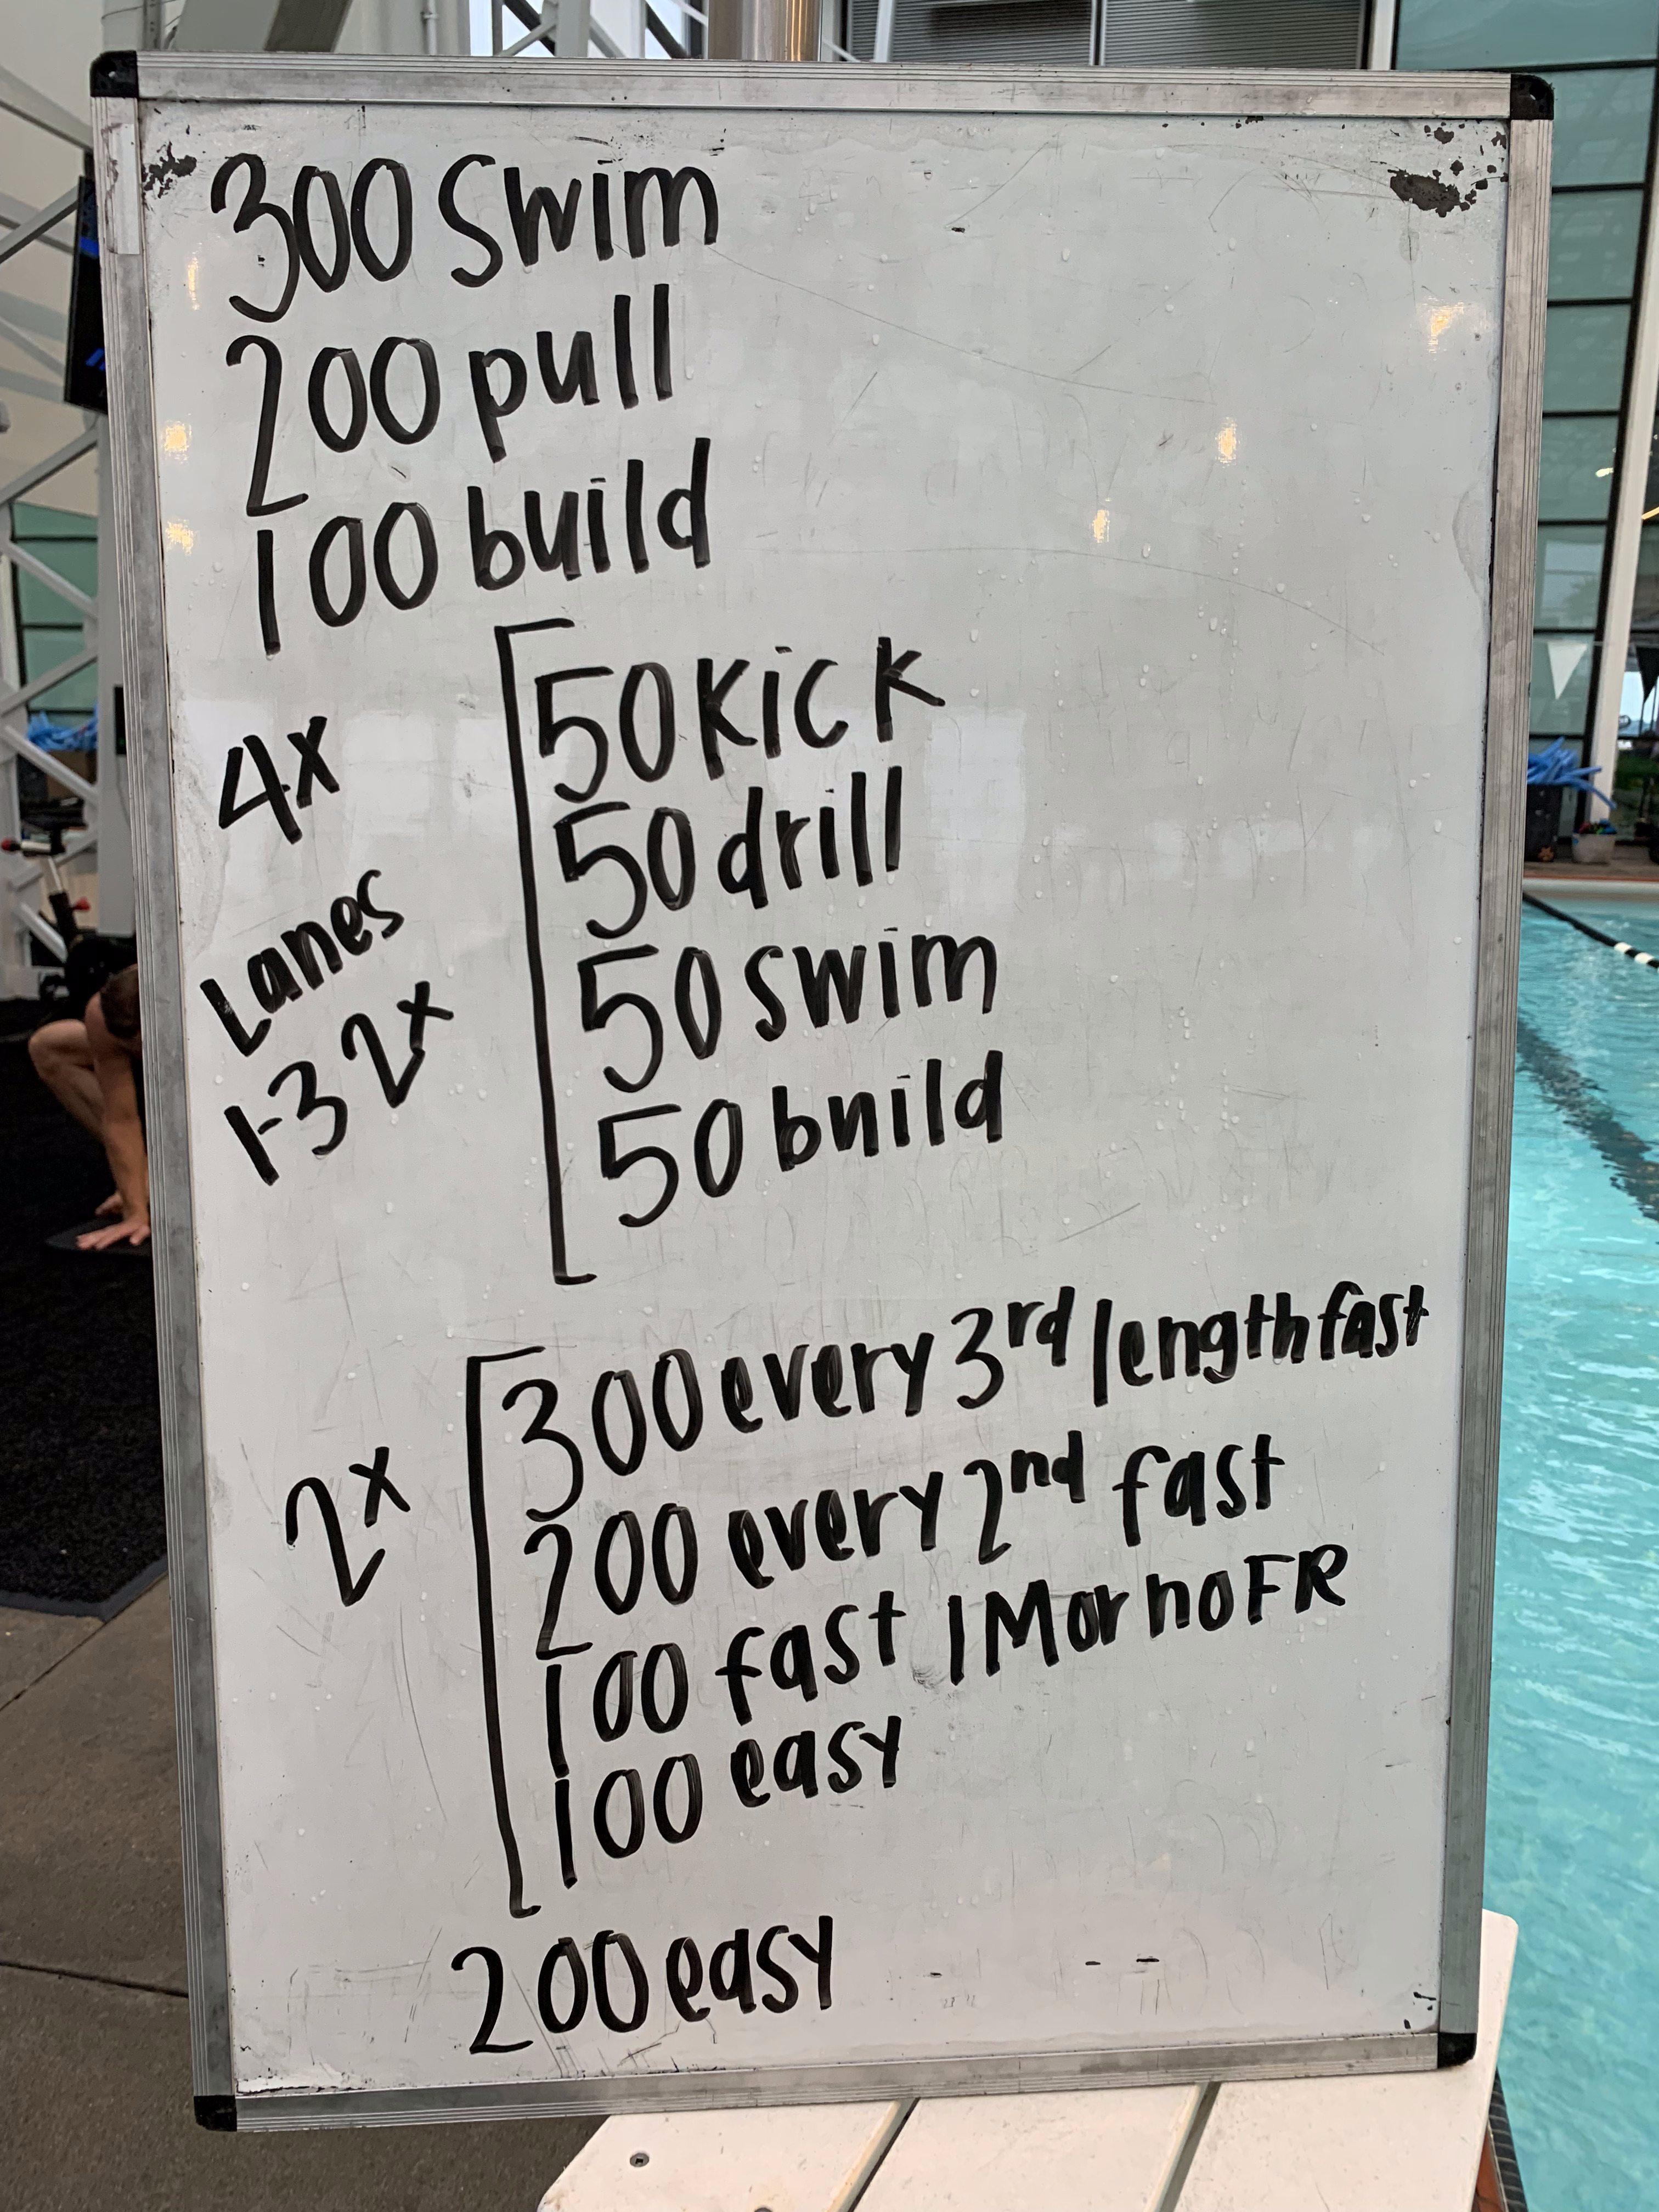 300 Swim
200 pull
100 build
4x
Lanes
1-3 2x
50 kick
50 drill
50 swim
50 build
2x
300 every 3rd length fast
200 every 2nd fast
100 fast IM or no FR
100 easy
200 easy